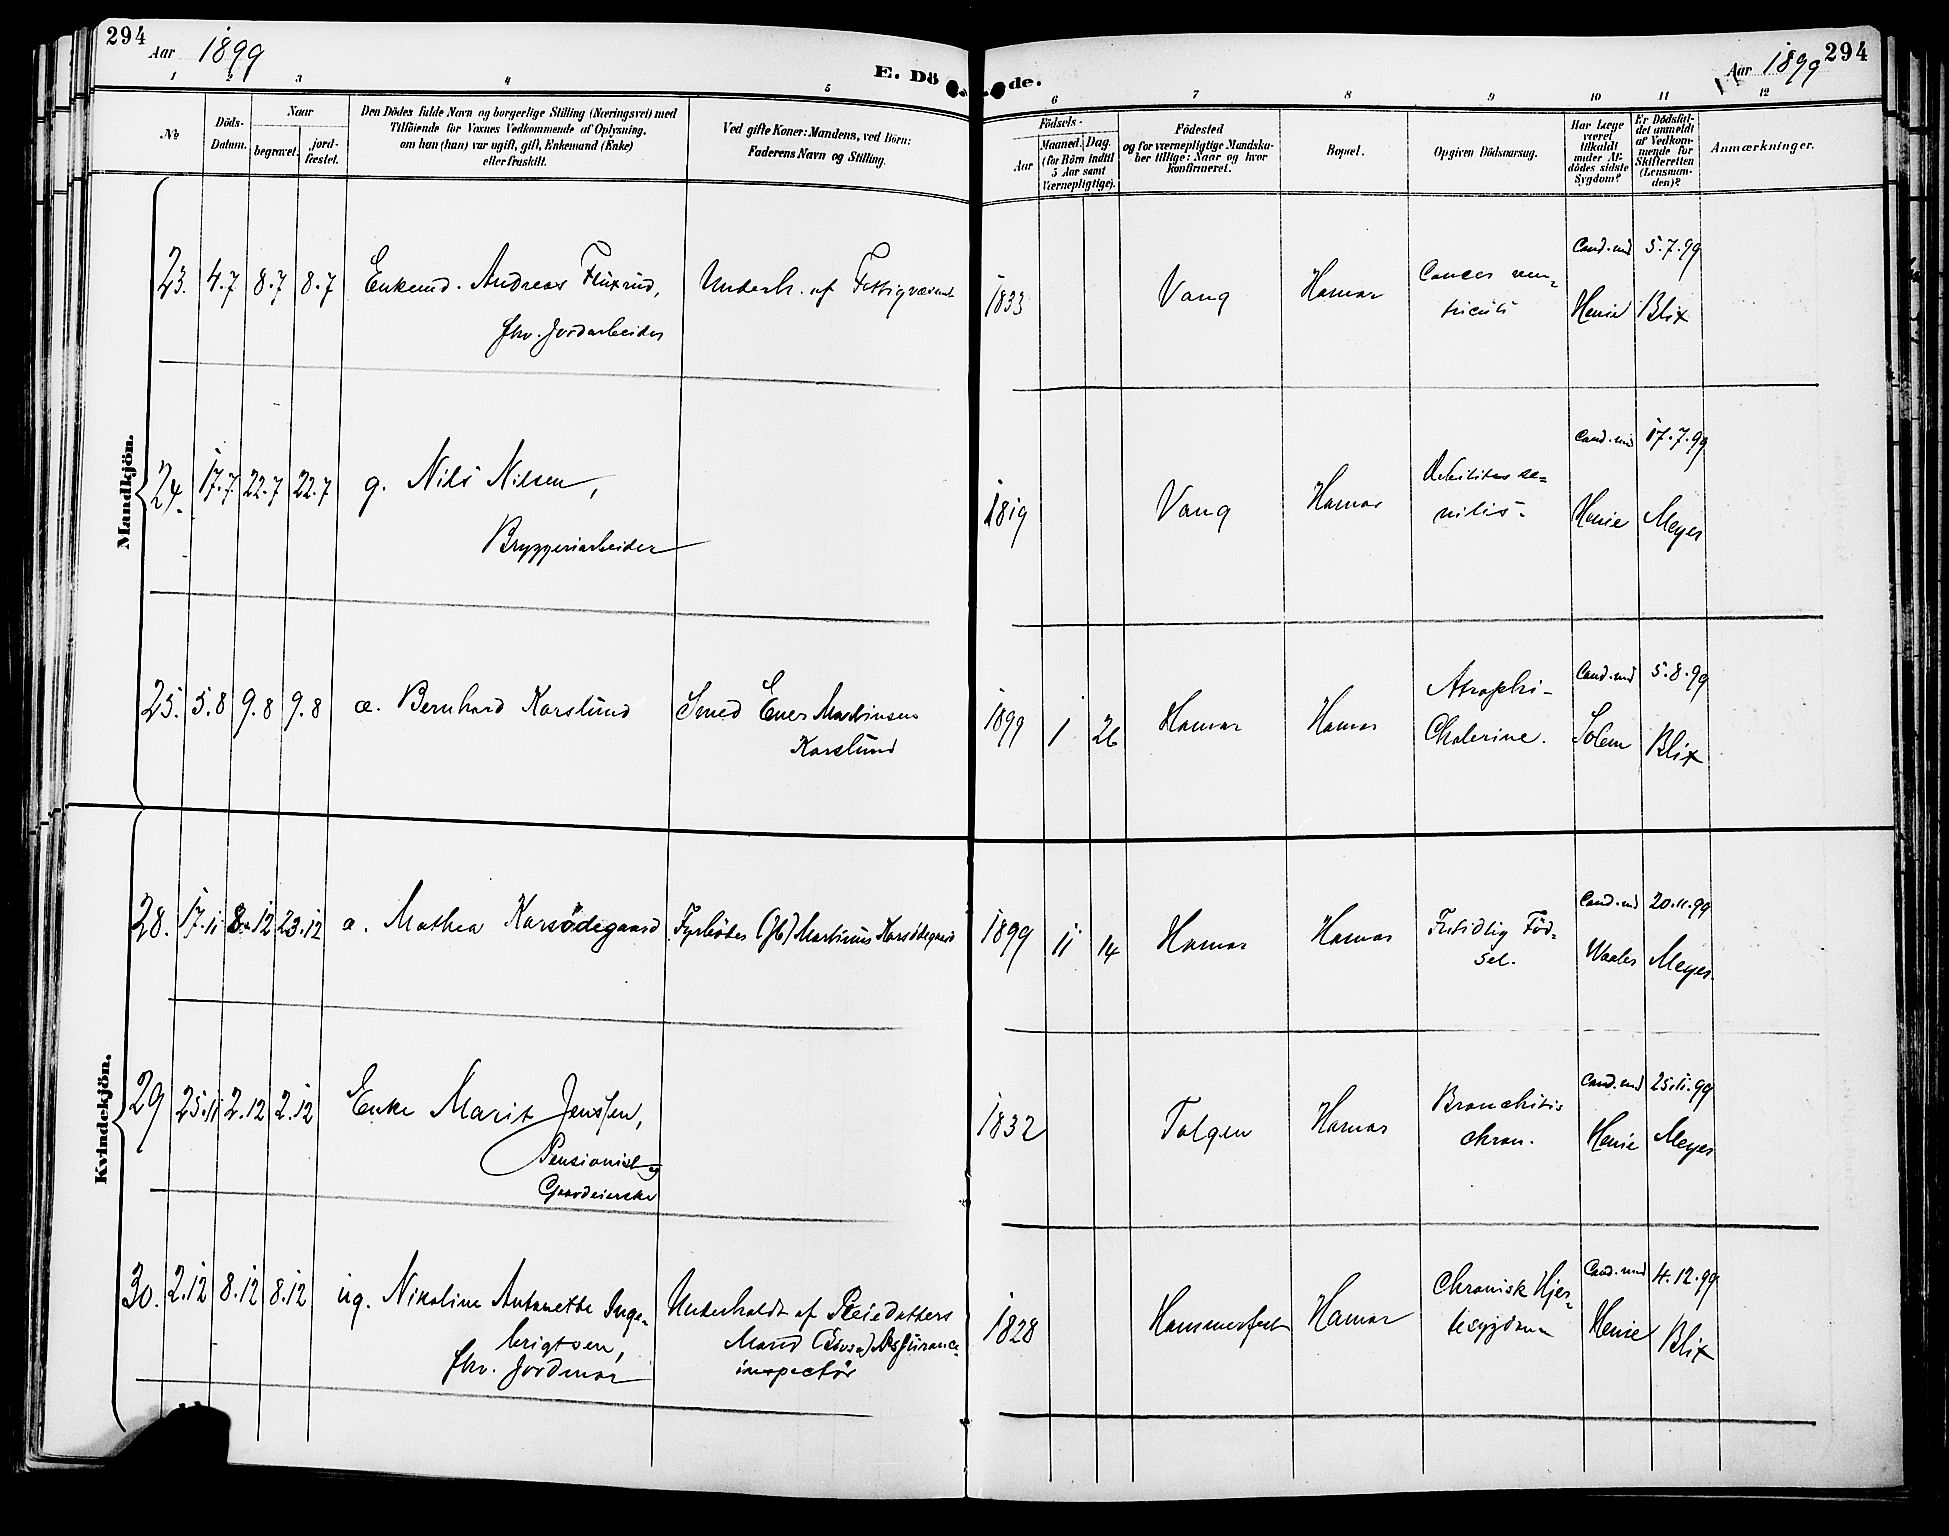 294
Aar 1899
E. Dö
de.
Aar 1899
294
1 2 3 4 5 6 7 8 9 10 11 12
No
Döds-
Datum.
Naar
begravet.
jord-
fæstet.
Den Dödes fulde Navn og borgerlige Stilling (Næringsvei) med
Tilföiende for Voxnes Vedkommende af Oplysning,
om han (hun) var ugift, gift, Enkemand (Enke)
eller fraskilt.
Ved gifte Koner: Mandens, ved Börn:
Faderens Navn og Stilling.
Födsels-
Aar
Maaned. Dag.
(for Börn indtil
5 Aar samt
Værnepligtige).
Födested
og for værnepligtige Mandska-
ber tillige: Naar og hvor
konfirmeret.
Bopæl.
Opgiven Dödsaarsag.
Har Læge
været
tilkaldt
under Af-
dödes sidste
Sygdom?
Er Dödsfal-
det anmeldt
af Vedkom-
mende for
Skifteretten
(Lensman-
den)?
Anmærkninger.
Mandkjön.
23. 4.7 8.7 8.7 Enkemd. Andreas Fluxrud, Underh. af Fattigvæsenet 1833 Vang Hamar Cancer ven- Cand. med 5.7.99
fhv. Jordarbeider triculi Henie Blix
24. 17.7 22.7 22.7 g. Nils Nilsen, 1819 Vang Hamar Debilitas se- Cand. med 17.7.99
Bryggeriarbeider nilis. Henie Meyer
25. 5.8 9.8 9.8 æ. Bernhard Karslund Smed Ener Martinsen 1899 1 26 Hamar Hamar Atrophi- Cand. med 5.8.99
Karslund Cholerine. Solem Blix
Kvindekjön.
28. 17.11 12 23.12 a. Mathea Karsødegaard Fyrbøder Martinus Karsødegaard 1899 11 14 Hamar Hamar Fortidlig Fød- Cand. med 20.11.99
sel. Waaler Meyer.
29 25.11 2.12 2.12 Enke Marit Jenssen, 1832 Tolgen Hamar Bronchitis Cand. med 25.11.99
Pensionist og chron. Henie Meyer
Gaardeierske
30. 2.12 8.12 8.12 ug. Nikoline Antonette Inge- Underholdt af Pleiedatters 1828 Hammerfest Hamar Chronisk Hjer- Cand. med 4.12.99
brigtsen, Mand Assurance- tesygdom Henie Blix
fhv. Jordmor inspectør